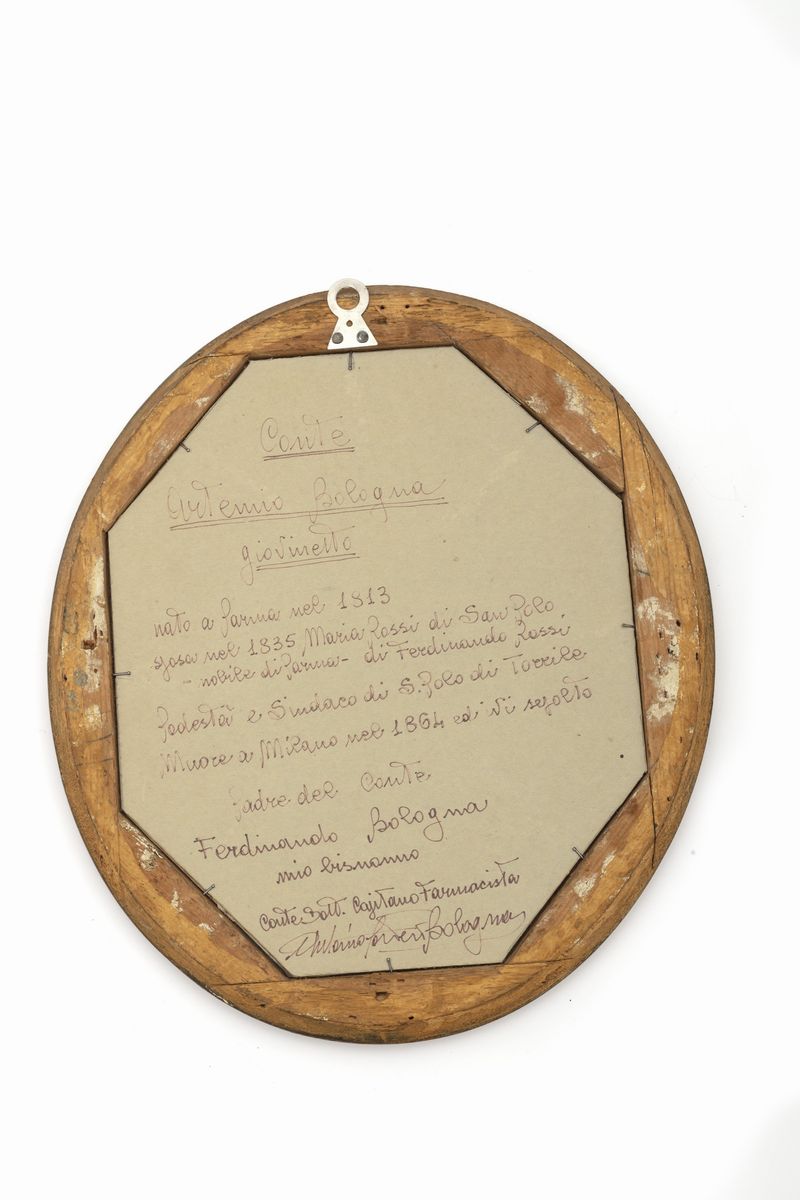 Conte
Artemio Bologna
giovinetto
nato a Parma nel 1813
sposa nel 1835 Maria Rossi di San Polo
- nobile di Parma - di Ferdinando Rossi
Podestà e Sindaco di S. Polo di Torrile
Muore a Milano nel 1864 ed ivi sepolto
Padre del Conte
Ferdinando Bologna
mio bisnonno
Conte Dott. Capitano Farmacista
Bologna